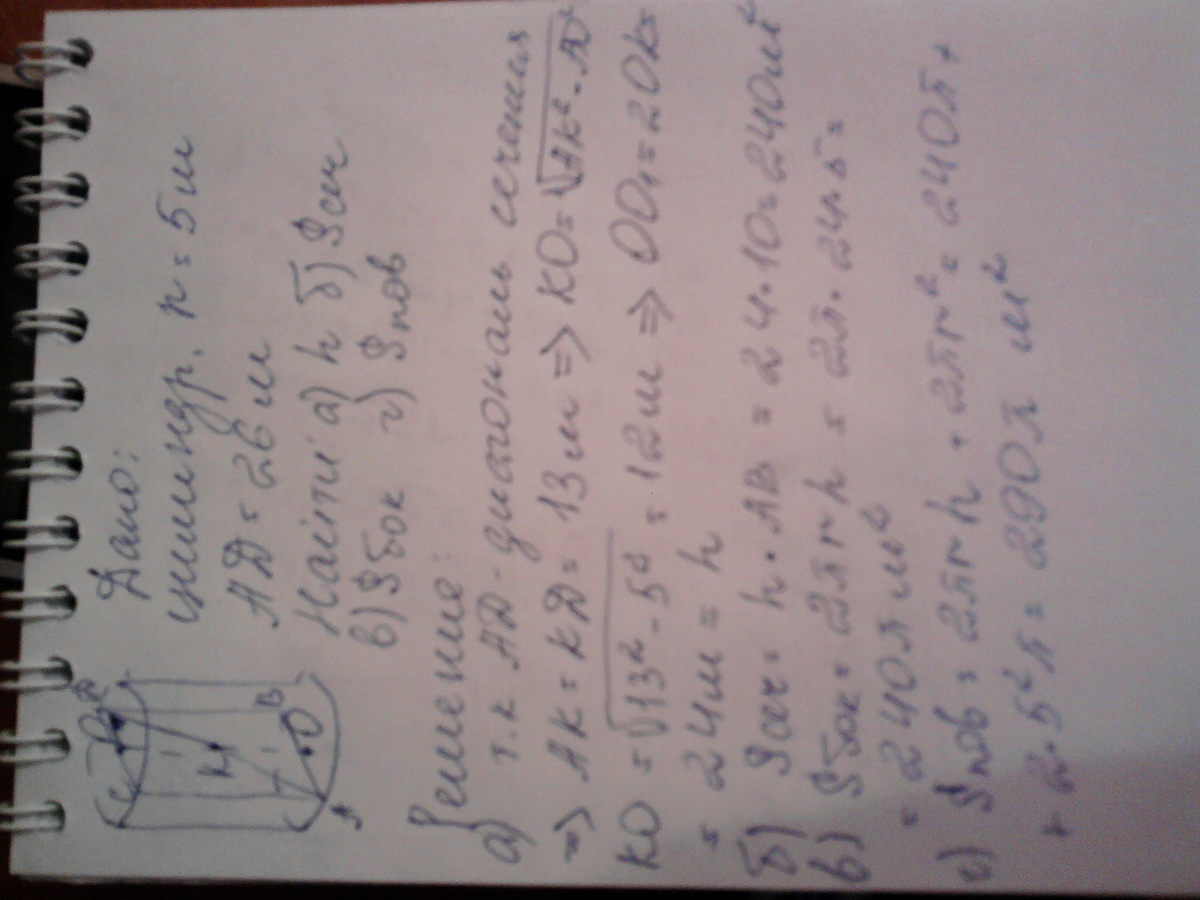 Дано:
цилиндр. r = 5 м
AD = 26 м
Найти: а) h б) Sсеч
в) Sбок г) Sпов
C
D
K
B
O
A
Решение:
а) т.к AD - диагональ сечения
=> AK = KD = 13 м => KO = √AK² - AO²
KO = √13² - 5² = 12 м => OO₁ = 2OK =
= 24 м = h
б) Sсеч = h · AB = 24 · 10 = 240 м²
в) Sбок = 2πrh = 2π · 24 · 5 =
= 240π м²
г) Sпов = 2πrh + 2πr² = 240π +
+ 2 · 5²π = 290π м²